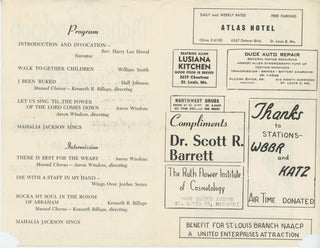 Program
INTRODUCTION AND INVOCATION—
Rev. Harry Lee Herod
Narrator
WALK TOGETHER CHILDREN William Smith
I BEEN 'BUKED Hall Johnson
Massed Chorus - Kenneth B. Billups, directing
LET US SING 'TIL THE POWER
OF THE LORD COMES DOWN Aaron Windom
Massed Chorus - Aaron Windom, directing
MAHALIA JACKSON SINGS
Intermission
THERE IS REST FOR THE WEARY Aaron Windom
Massed Chorus - Aaron Windom, directing
DIE WITH A STAFF IN MY HAND -
Wings Over Jordan Series
ROCKA MY SOUL IN THE BOSOM
OF ABRAHAM Kenneth B. Billups
Massed Chorus - Kenneth B. Billups, directing
MAHALIA JACKSON SINGS
DAILY and WEEKLY RATES FREE PARKING
ATLAS HOTEL
4267 Delmar Blvd. St. Louis 8, Mo.
BEATRICE ALLEN
LUSIANA
KITCHEN
GOOD FOOD & SERVICE
St. Louis, Mo.
DUDE AUTO REPAIR
GENERAL MOTOR REPAIRING
NORTHWEST DRUGS
Compliments
Dr. Scott R.
Barrett
The Ruth Flower Institute
of Cosmetology
Thanks
to
STATIONS-
WBBR
and
KATZ
AIR TIME DONATED
BENEFIT FOR ST. LOUIS BRANCH NAACP
A UNITED ENTERPRISES ATTRACTION